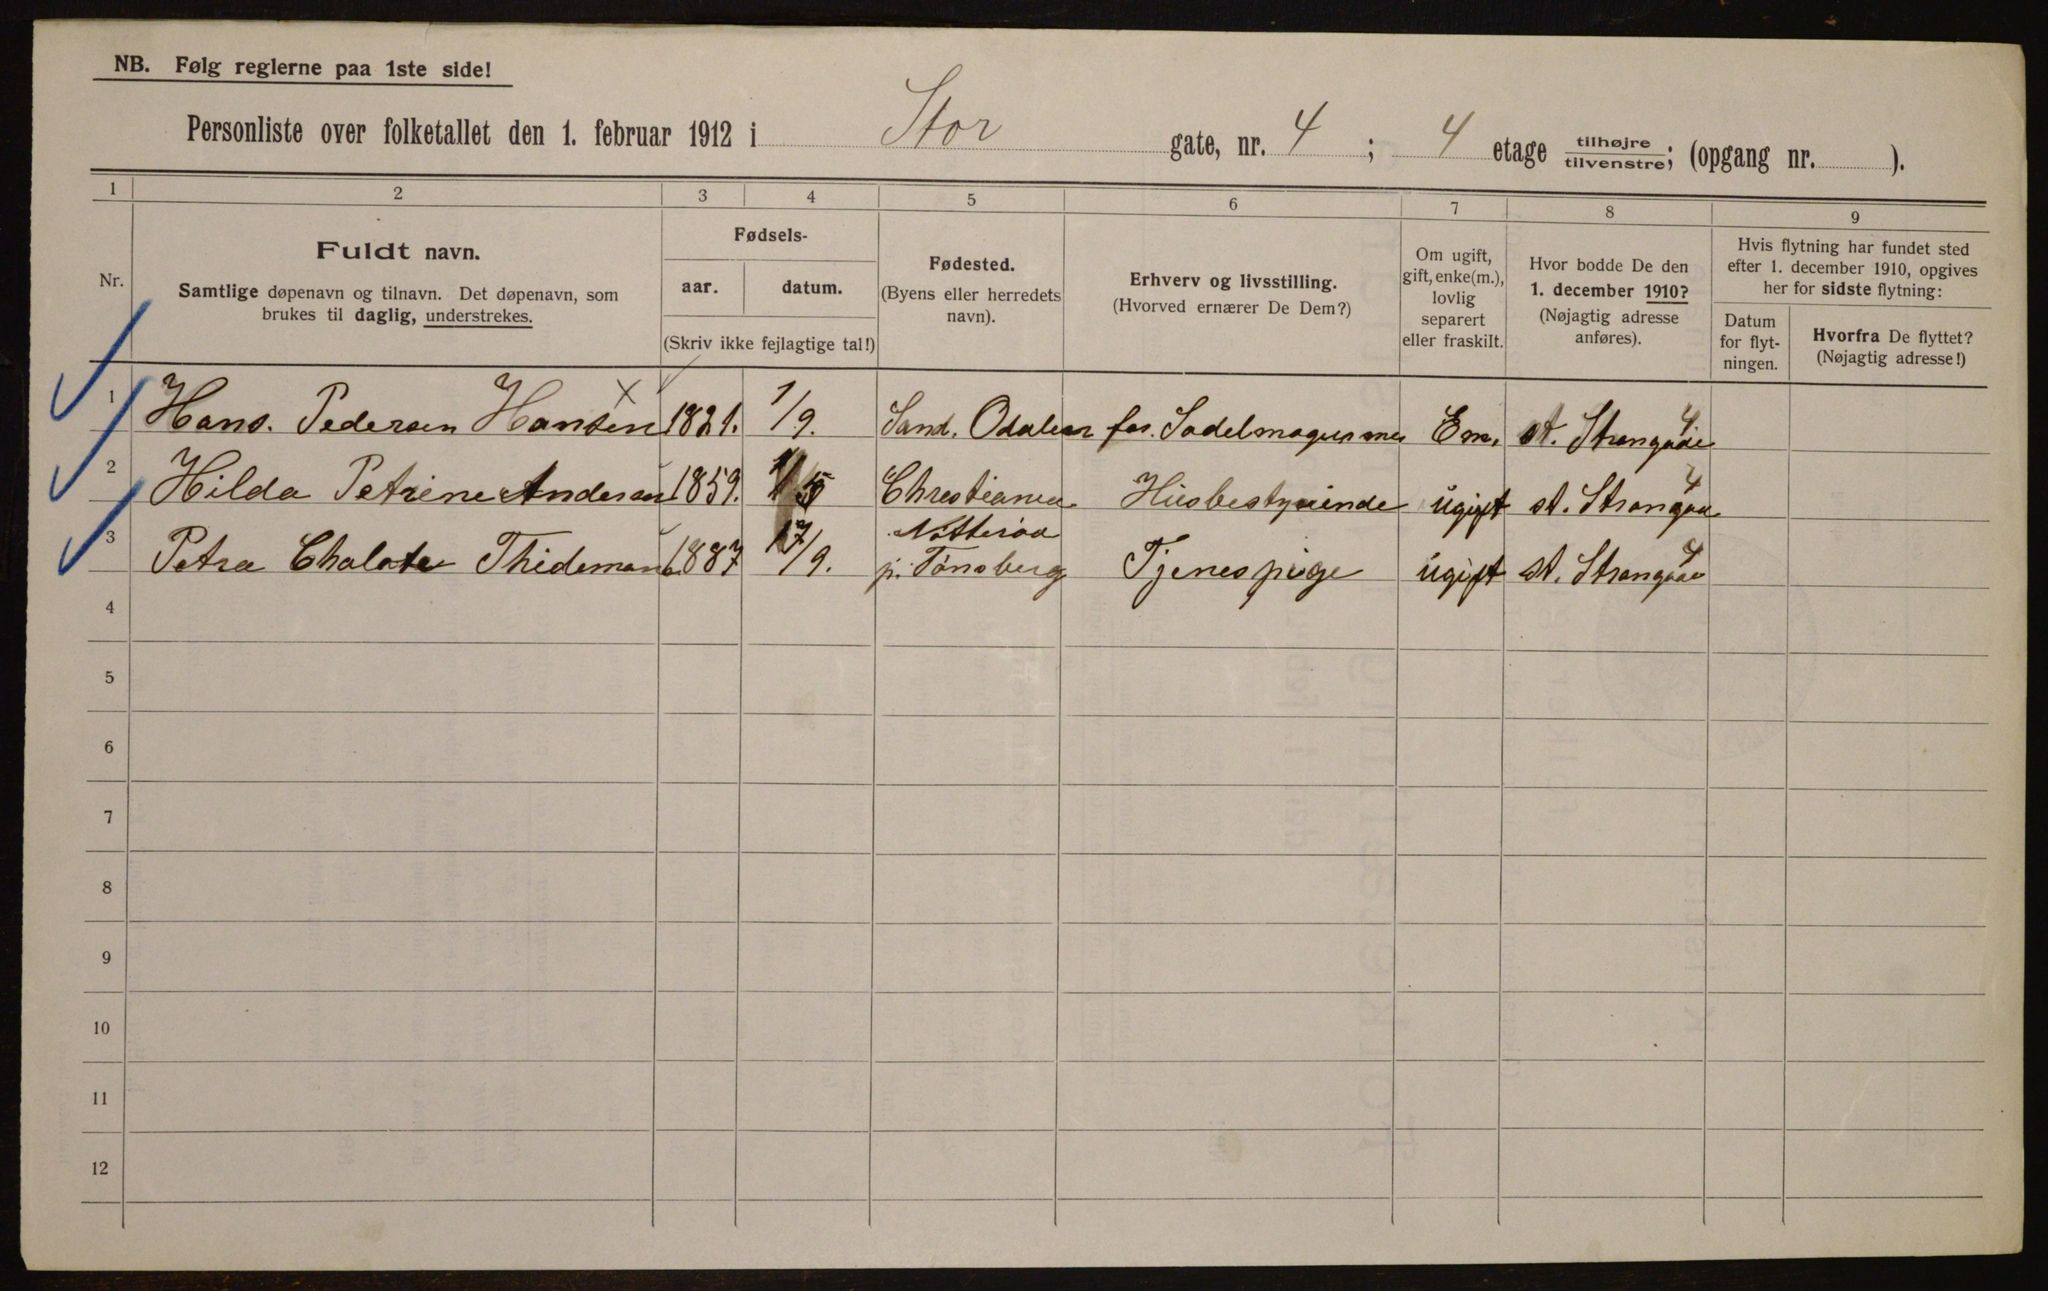 NB. Følg reglerne paa 1ste side!
Personliste over folketallet den 1. februar 1912 i Stor gate, nr. 4 ; 4 etage tilhøjre tilvenstre; (opgang nr. ).
1 2 3 4 5 6 7 8 9
Nr.
Fuldt navn.
Samtlige døpenavn og tilnavn. Det døpenavn, som
brukes til daglig, understrekes.
Fødsels-
aar. datum.
(Skriv ikke fejlagtige tal!)
Fødested.
(Byens eller herredets
navn).
Erhverv og livsstilling.
(Hvorved ernærer De Dem?)
Om ugift,
gift, enke(m.),
lovlig
separert
eller fraskilt.
Hvor bodde De den
1. december 1910?
(Nøjagtig adresse
anføres).
Hvis flytning har fundet sted
efter 1. december 1910, opgives
her for sidste flytning:
Datum
for flyt-
ningen.
Hvorfra De flyttet?
(Nøjagtig adresse!)
1 Hans. Pedersen Hansen 1821. 1/9. Sand. Odalen for. Em. st. 4
2 Hilda Petrine Andersen 1859. Christiania ugift st. 4
3 Petra Chalote 1887 17/9. Nøtterøa p. Tønsberg Tjenespige ugift st. 4
4
5
6
7
8
9
10
11
12